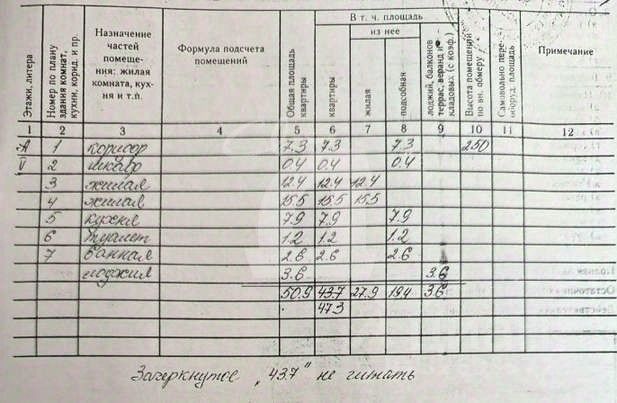 Этажи, литера
Номер по плану здания комнат, кухни, корид. и пр.
Назначение частей помеще- ния: жилая комната, кух- ня и т.п.
Формула подсчета помещений
Общая площадь квартиры
В т. ч. площадь
квартиры
из нее
жилая
подсобная
лоджий, балконов террас, веранд и кладовых (с коэф.)
Высота помещений по вн. обмеру
Самовольно пере- оборуд. площадь
Примечание
1 2 3 4 5 6 7 8 9 10 11 12
А 1 коридор 7.3 7.3 7.3 250
V 2 шкаф 0.4 0.4 0.4
3 жилая 12.4 12.4 12.4
4 жилая 15.5 15.5 15.5
5 кухня 7.9 7.9 7.9
6 туалет 1.2 1.2 1.2
7 ванная 2.6 2.6 2.6
лоджия 3.6 3.6
50.9 43.7 27.9 19.4 3.6
47.3
Зачеркнутое „43.7" не читать